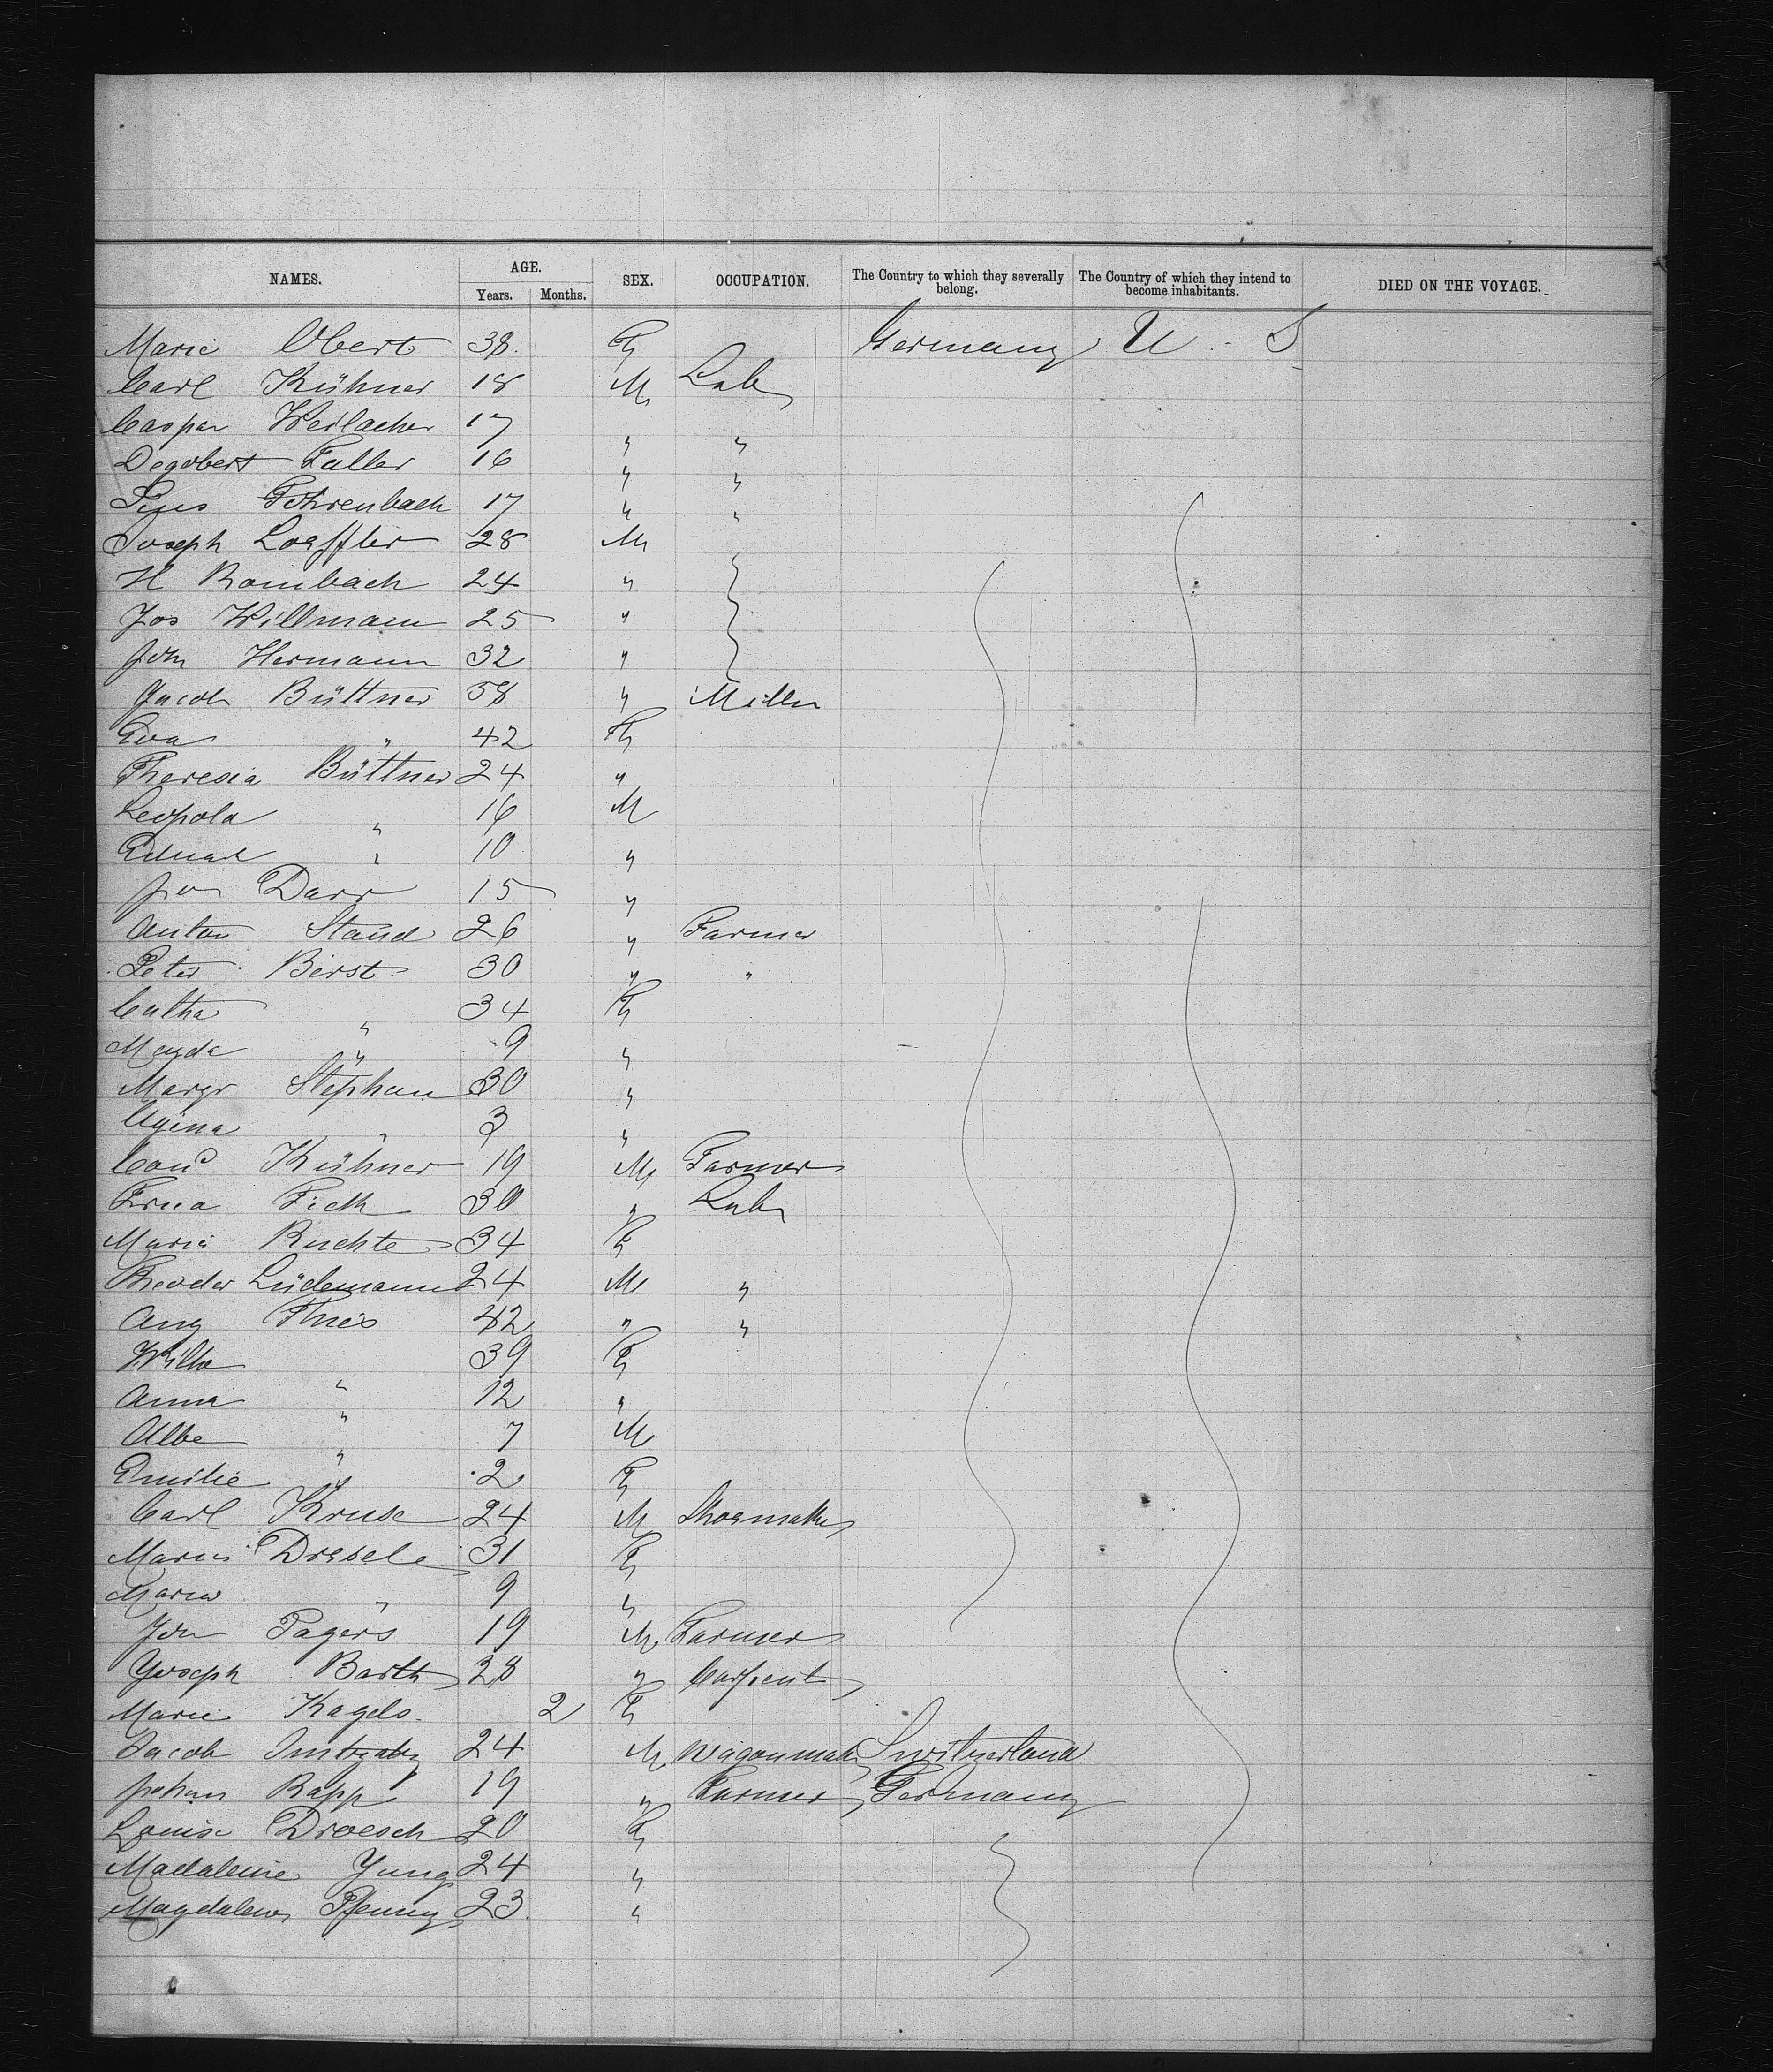 NAMES. AGE. SEX. OCCUPATION. The Country to which they severally belong. The Country of which they intend to become inhabitants. DIED ON THE VOYAGE.
Years. Months.
Marie Obert 38 F Germany U. S
Carl Kühner 18 M Lab
Caspar Weilacher 17 " "
Dagobert Faller 16 " "
Pius Fehrenbach 17 " "
Joseph Loeffler 28 M
H Rombach 24 "
Jos Willmann 25 "
Joh Hermann 32 "
Jacob Büttner 58 " Miller
Eva " 42 F
Theresia Büttner 24 "
Leopold " 16 M
Eduard " 10 "
Darr 15 "
Anton Staud 26 " Farmer
Peter Birst 30 " "
Catha " 34 F
Magda " 9 "
Margr Stephan 30 "
" 3 "
Kühner 19 M Farmer
Fich 30 " Lab
Maria Ruchte 34 F
Theodor Lüdemann 24 M "
Aug Thies 42 " "
Wilhe " 39 F
Anna " 12 "
Albe " 7 M
Emilie " 2 F
Carl Kruse 24 M Shoemaker
Maria Dresele 31 F
Maria " 9 "
Joh Pagers 19 M Farmer
Joseph Barth 28 " Carpent
Marie Kagels 2 F
Jacob 24 M Wagonmak Switzerland
Johan Rapp 19 " Farmer Germany
Louise Droesch 20 F
Madaleine Jung 24 "
Magdalena Pfennig 23 "